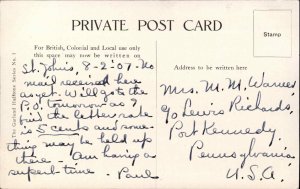 PRIVATE POST CARD
For British, Colonial and Local use only
this space may now be written on.
Address to be written here
Stamp
St. Johns, 8-2-'07. No
mail received here
as yet. Will go to the
P.O. tomorrow as I
find the letter rate
is 5 cents and some-
thing may be held up
there - Am having a
superb time - Paul
Mrs. M. M. Warner
c/o Lewis Richards,
Port Kennedy,
Pennsylvania
U.S.A.